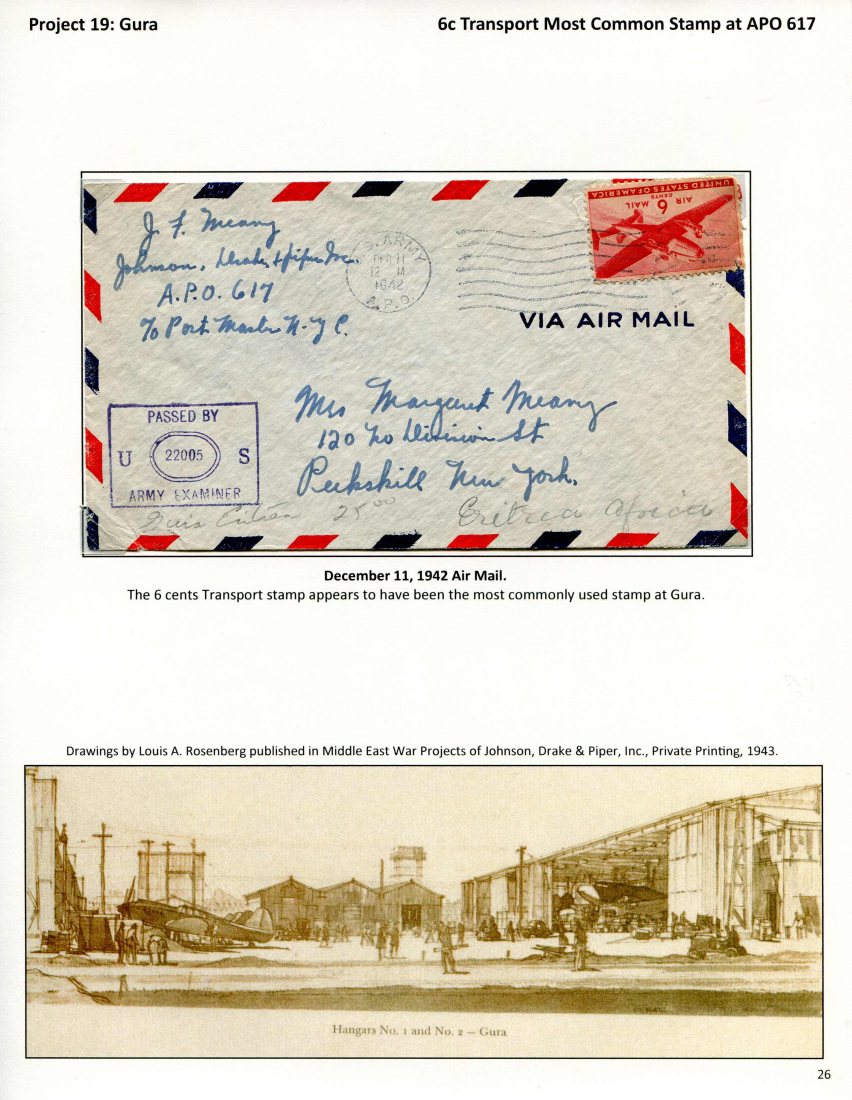 Project 19: Gura
6c Transport Most Common Stamp at APO 617
UNITED STATES OF AMERICA
AIR 6 MAIL
CENTS
J. F. Meany
Johnson, Drake & Piper Inc.
A.P.O. 617
℅ Post Master N.Y.C.
U.S. ARMY
DEC 11
12 M
1942
A.P.O.
VIA AIR MAIL
Mrs Margaret Meany
120 No Division St
Peekskill New York.
PASSED BY
U 22005 S
ARMY EXAMINER
25⁰⁰ Eritrea Africa
December 11, 1942 Air Mail.
The 6 cents Transport stamp appears to have been the most commonly used stamp at Gura.
Drawings by Louis A. Rosenberg published in Middle East War Projects of Johnson, Drake & Piper, Inc., Private Printing, 1943.
Hangars No. 1 and No. 2 – Gura
26